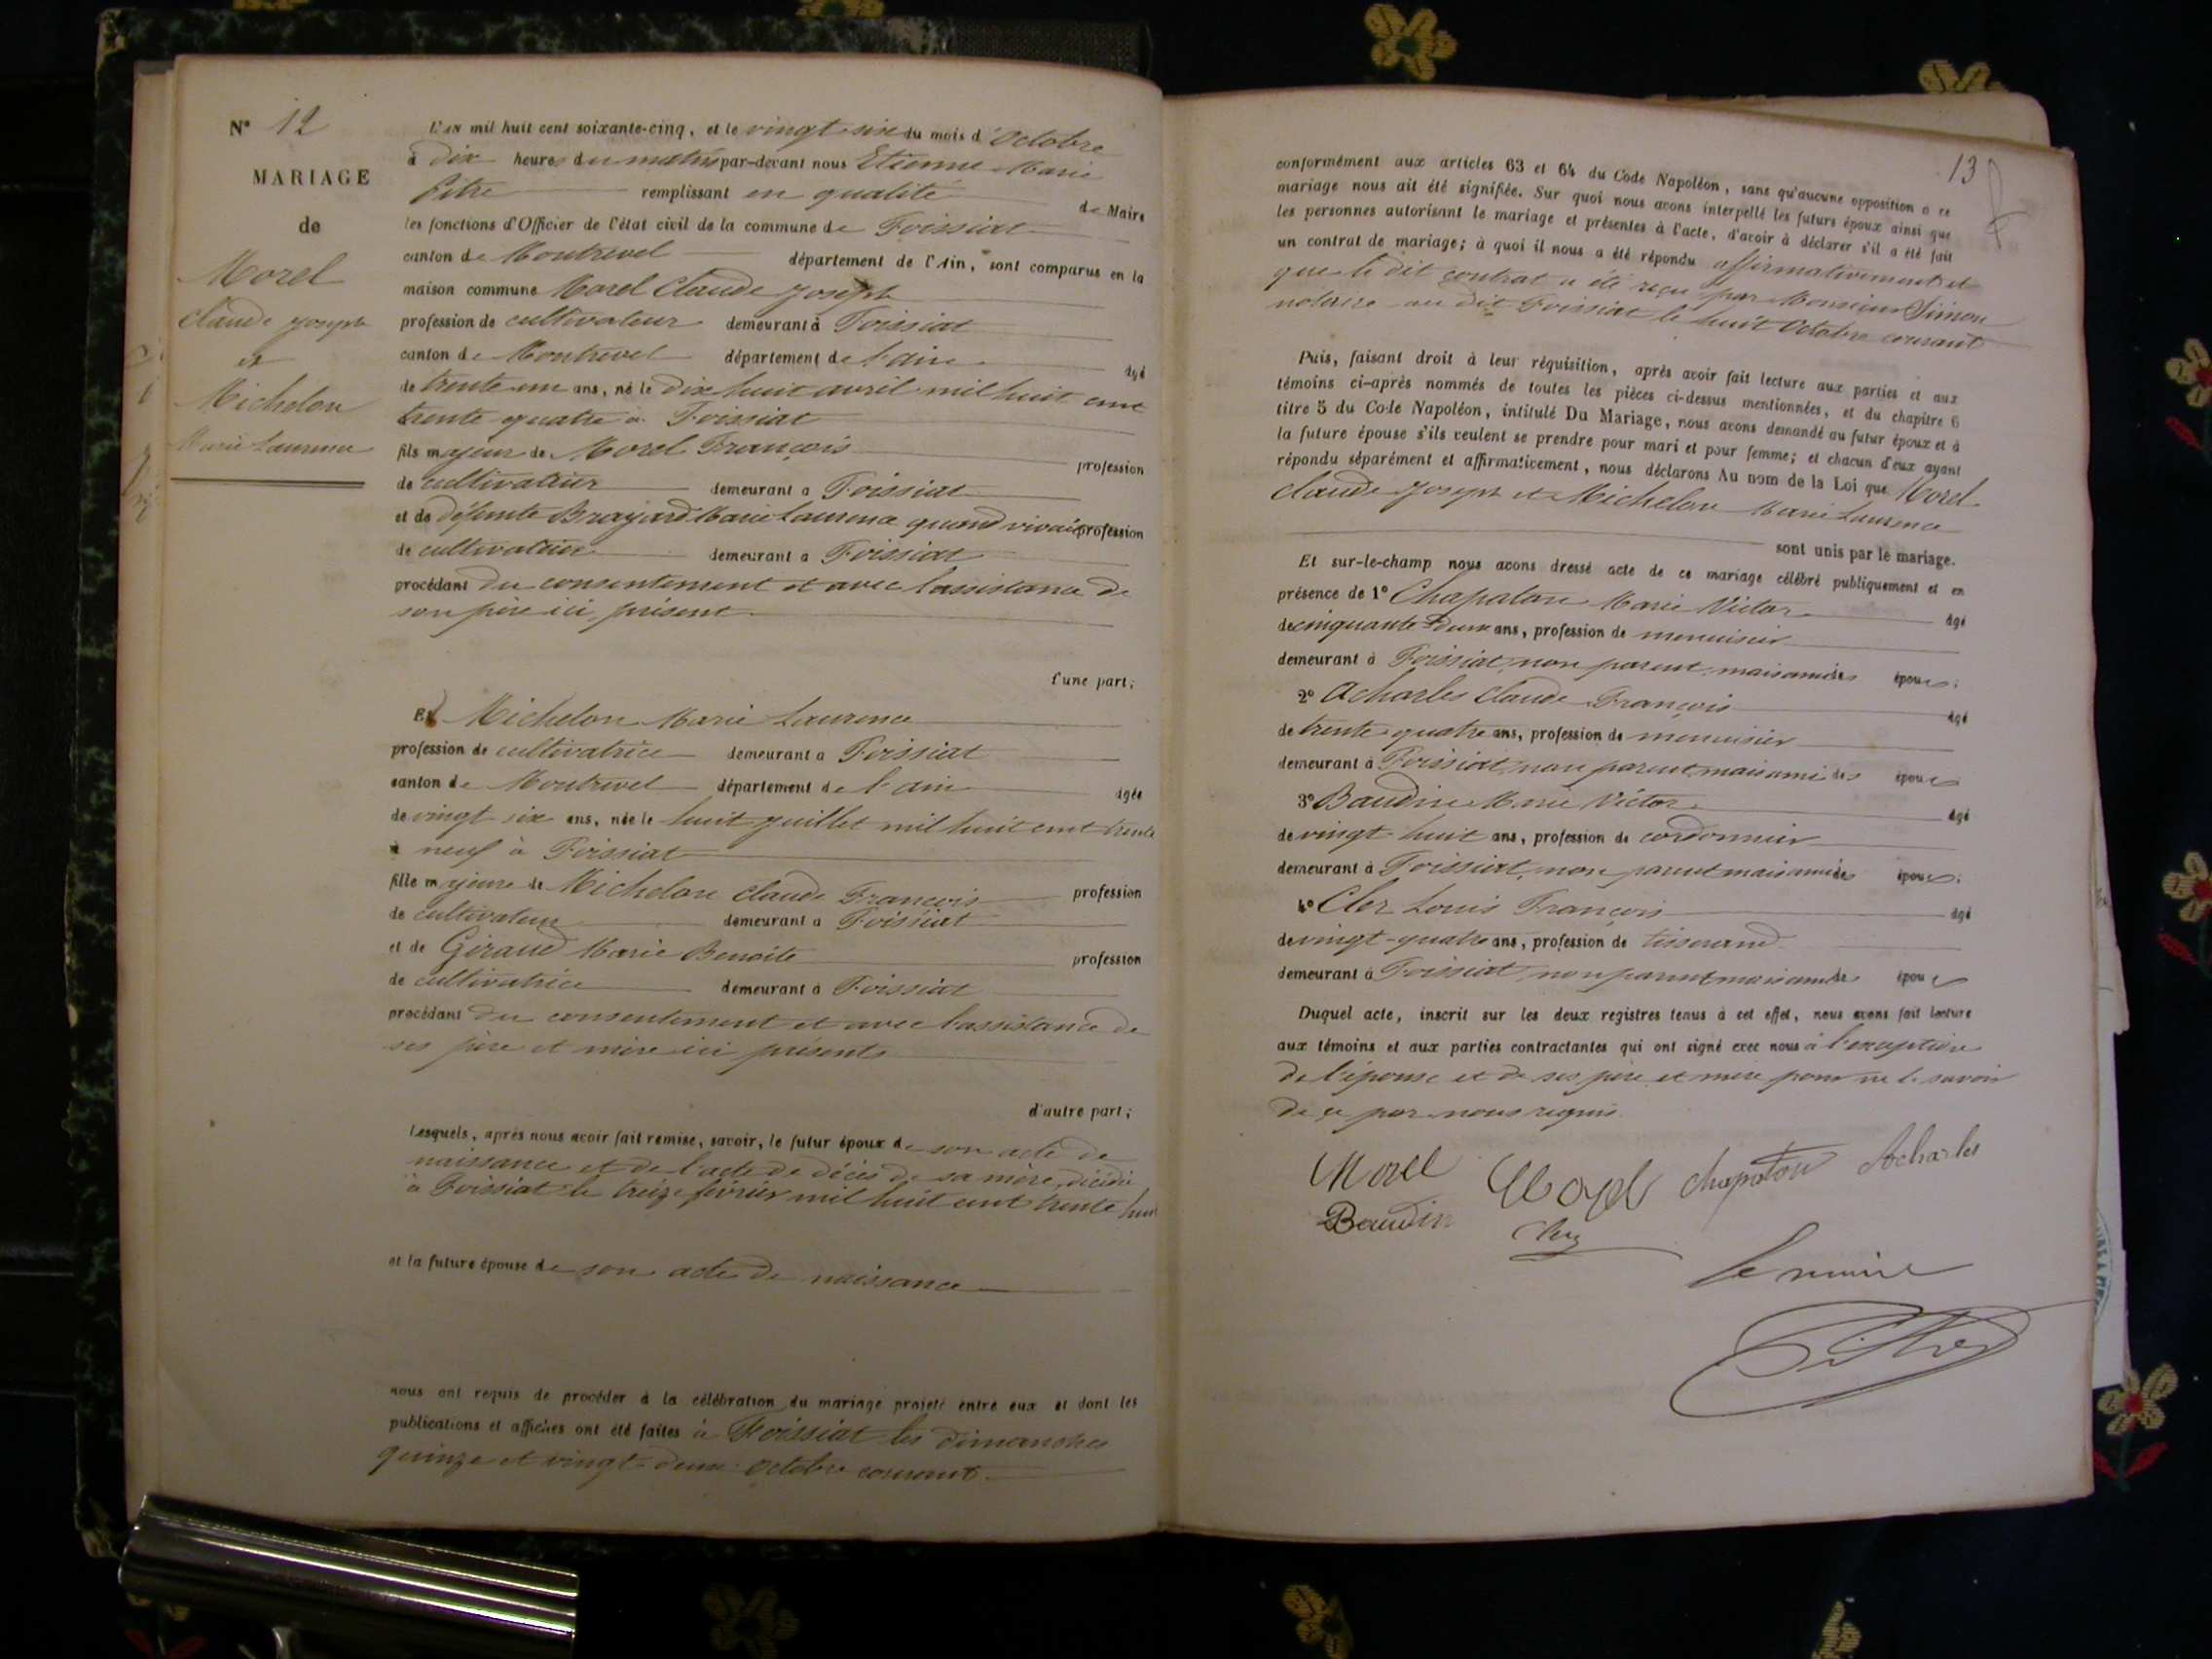 N° 12
MARIAGE
de
Morel
Claude Joseph
et
Michelon
Marie Laurence
L'an mil huit cent soixante-cinq, et le vingt six du mois d'Octobre
à dix heures du matin par-devant nous Etienne Marie
Pitre remplissant en qualité de Maire
les fonctions d'Officier de l'état civil de la commune de Foissiat
canton de Montrevel département de l'Ain, sont comparus en la
maison commune Morel Claude Joseph
profession de cultivateur demeurant à Foissiat
canton de Montrevel département de l'ain âgé
de trente un ans, né le dix huit avril mil huit cent
trente quatre à Foissiat
fils majeur de Morel François profession
de cultivateur demeurant à Foissiat
et de défunte Brayard Marie Laurence quand vivait profession
de cultivatrice demeurant à Foissiat
procédant du consentement et avec l'assistance de
son père ici présent
d'une part;
Et Michelon Marie Laurence
profession de cultivatrice demeurant à Foissiat
canton de Montrevel département de l'ain âgée
de vingt six ans, née le huit juillet mil huit cent trente
neuf à Foissiat
fille majeure de Michelon Claude François profession
de cultivateur demeurant à Foissiat
et de Giraud Marie Benoite profession
de cultivatrice demeurant à Foissiat
procédant du consentement et avec l'assistance de
ses père et mère ici présents
d'autre part;
Lesquels, après nous avoir fait remise, savoir, le futur époux de son acte de
naissance et de l'acte de décès de sa mère, décédée
à Foissiat le treize février mil huit cent trente huit
et la future épouse de son acte de naissance
nous ont requis de procéder à la célébration du mariage projeté entre eux et dont les
publications et affiches ont été faites à Foissiat les dimanches
quinze et vingt-deux Octobre courant
13
conformément aux articles 63 et 64 du Code Napoléon, sans qu'aucune opposition à ce
mariage nous ait été signifiée. Sur quoi nous avons interpellé les futurs époux ainsi que
les personnes autorisant le mariage et présentes à l'acte, d'avoir à déclarer s'il a été fait
un contrat de mariage; à quoi il nous a été répondu affirmativement et
que le dit contrat a été reçu par Monsieur Simon
notaire au dit Foissiat le huit Octobre courant
Puis, faisant droit à leur réquisition, après avoir fait lecture aux parties et aux
témoins ci-après nommés de toutes les pièces ci-dessus mentionnées, et du chapitre 6
titre 5 du Code Napoléon, intitulé Du Mariage, nous avons demandé au futur époux et à
la future épouse s'ils veulent se prendre pour mari et pour femme; et chacun d'eux ayant
répondu séparément et affirmativement, nous déclarons Au nom de la Loi que Morel
Claude Joseph et Michelon Marie Laurence
sont unis par le mariage.
Et sur-le-champ nous avons dressé acte de ce mariage célébré publiquement et en
présence de 1° Chapaton Marie Victor âgé
de cinquante deux ans, profession de menuisier
demeurant à Foissiat, non parent mais ami des époux;
2° Acharles Claude François âgé
de trente quatre ans, profession de menuisier
demeurant à Foissiat, non parent mais ami des époux
3° Baudin Marie Victor âgé
de vingt huit ans, profession de cordonnier
demeurant à Foissiat, non parent mais ami des époux;
4° Cler Louis François âgé
de vingt-quatre ans, profession de tisserand
demeurant à Foissiat, non parent mais ami des époux
Duquel acte, inscrit sur les deux registres tenus à cet effet, nous avons fait lecture
aux témoins et aux parties contractantes qui ont signé avec nous à l'exception
de l'épouse et de ses père et mère pour ne le savoir
de ce par nous requis
Morel Chapaton Acharles
Baudin
le maire
Pitre